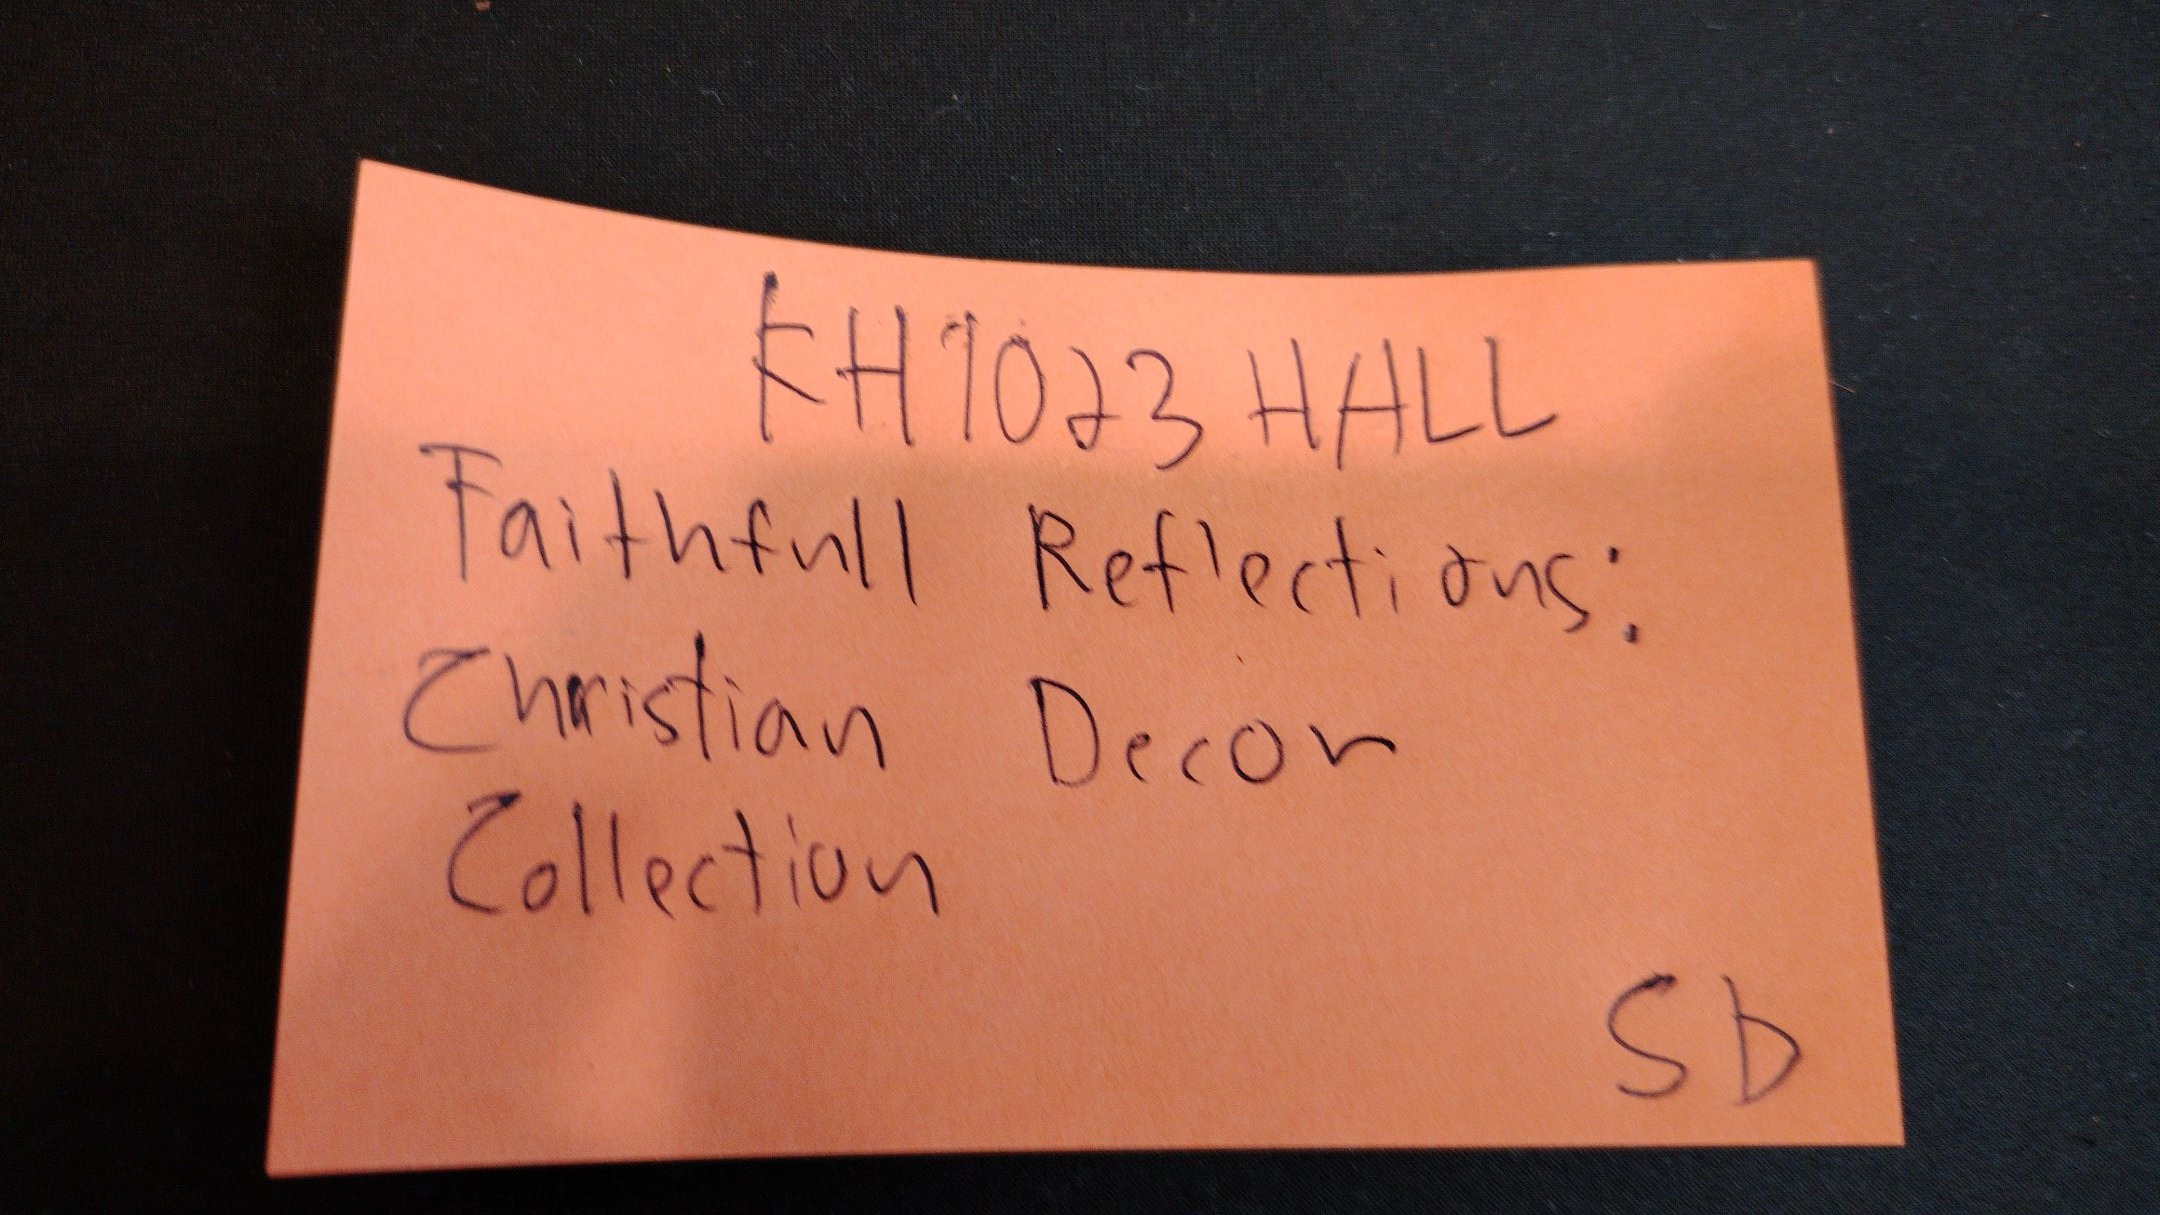 KH1023 HALL
Faithfull Reflections:
Christian Decor
Collection
SD